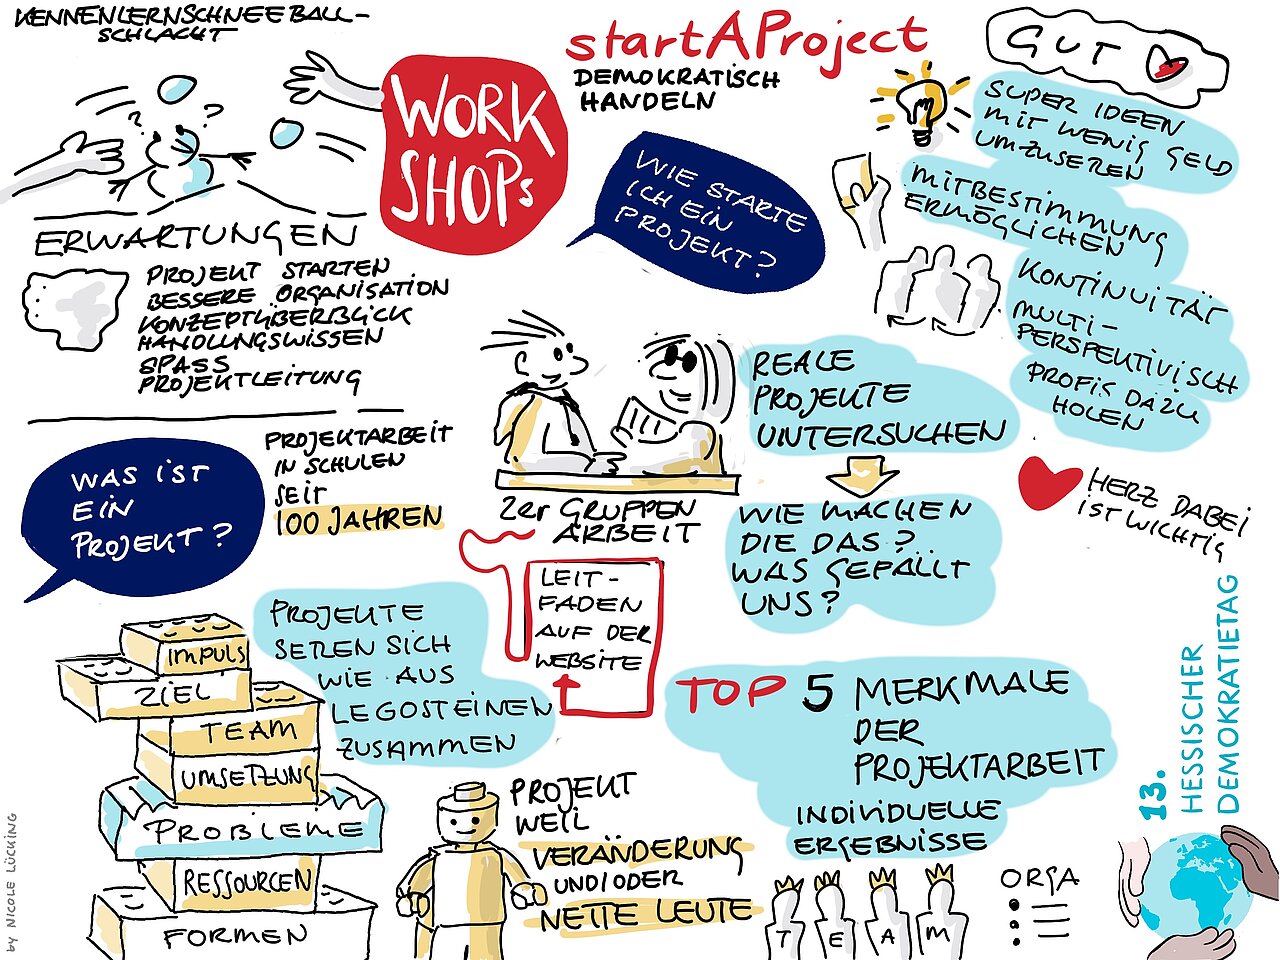 KENNENLERNSCHNEEBALL-
SCHLACHT
?
?
WORK
SHOPs
startAProject
DEMOKRATISCH
HANDELN
WIE STARTE
ICH EIN
PROJEKT?
GUT
SUPER IDEEN
MIT WENIG GELD
UMZUSEREN
MITBESTIMMUNG
ERMÖGLICHEN
KONTINUITÄT
MULTI-
PERSPEKTIVISCH
PROFIS DAZU
HOLEN
HERZ DABEI
IST WICHTIG
ERWARTUNGEN
PROJEKT STARTEN
BESSERE ORGANISATION
KONZEPTÜBERBLICK
HANDLUNGSWISSEN
SPASS
PROJEKTLEITUNG
WAS IST
EIN
PROJEKT?
PROJEKTARBEIT
IN SCHULEN
SEIT
100 JAHREN
2er GRUPPEN
ARBEIT
LEIT-
FADEN
AUF DER
WEBSITE
REALE
PROJEKTE
UNTERSUCHEN
WIE MACHEN
DIE DAS?
WAS GEFÄLLT
UNS?
IMPULS
ZIEL
TEAM
UMSETZUNG
PROBLEME
RESSOURCEN
FORMEN
PROJEKTE
SETZEN SICH
WIE AUS
LEGOSTEINEN
ZUSAMMEN
PROJEKT
WEIL
VERÄNDERUNG
UND/ODER
NETTE LEUTE
TOP 5 MERKMALE
DER
PROJEKTARBEIT
INDIVIDUELLE
ERGEBNISSE
TEAM
ORGA
13.
HESSISCHER
DEMOKRATIETAG
by NICOLE LÜCKING